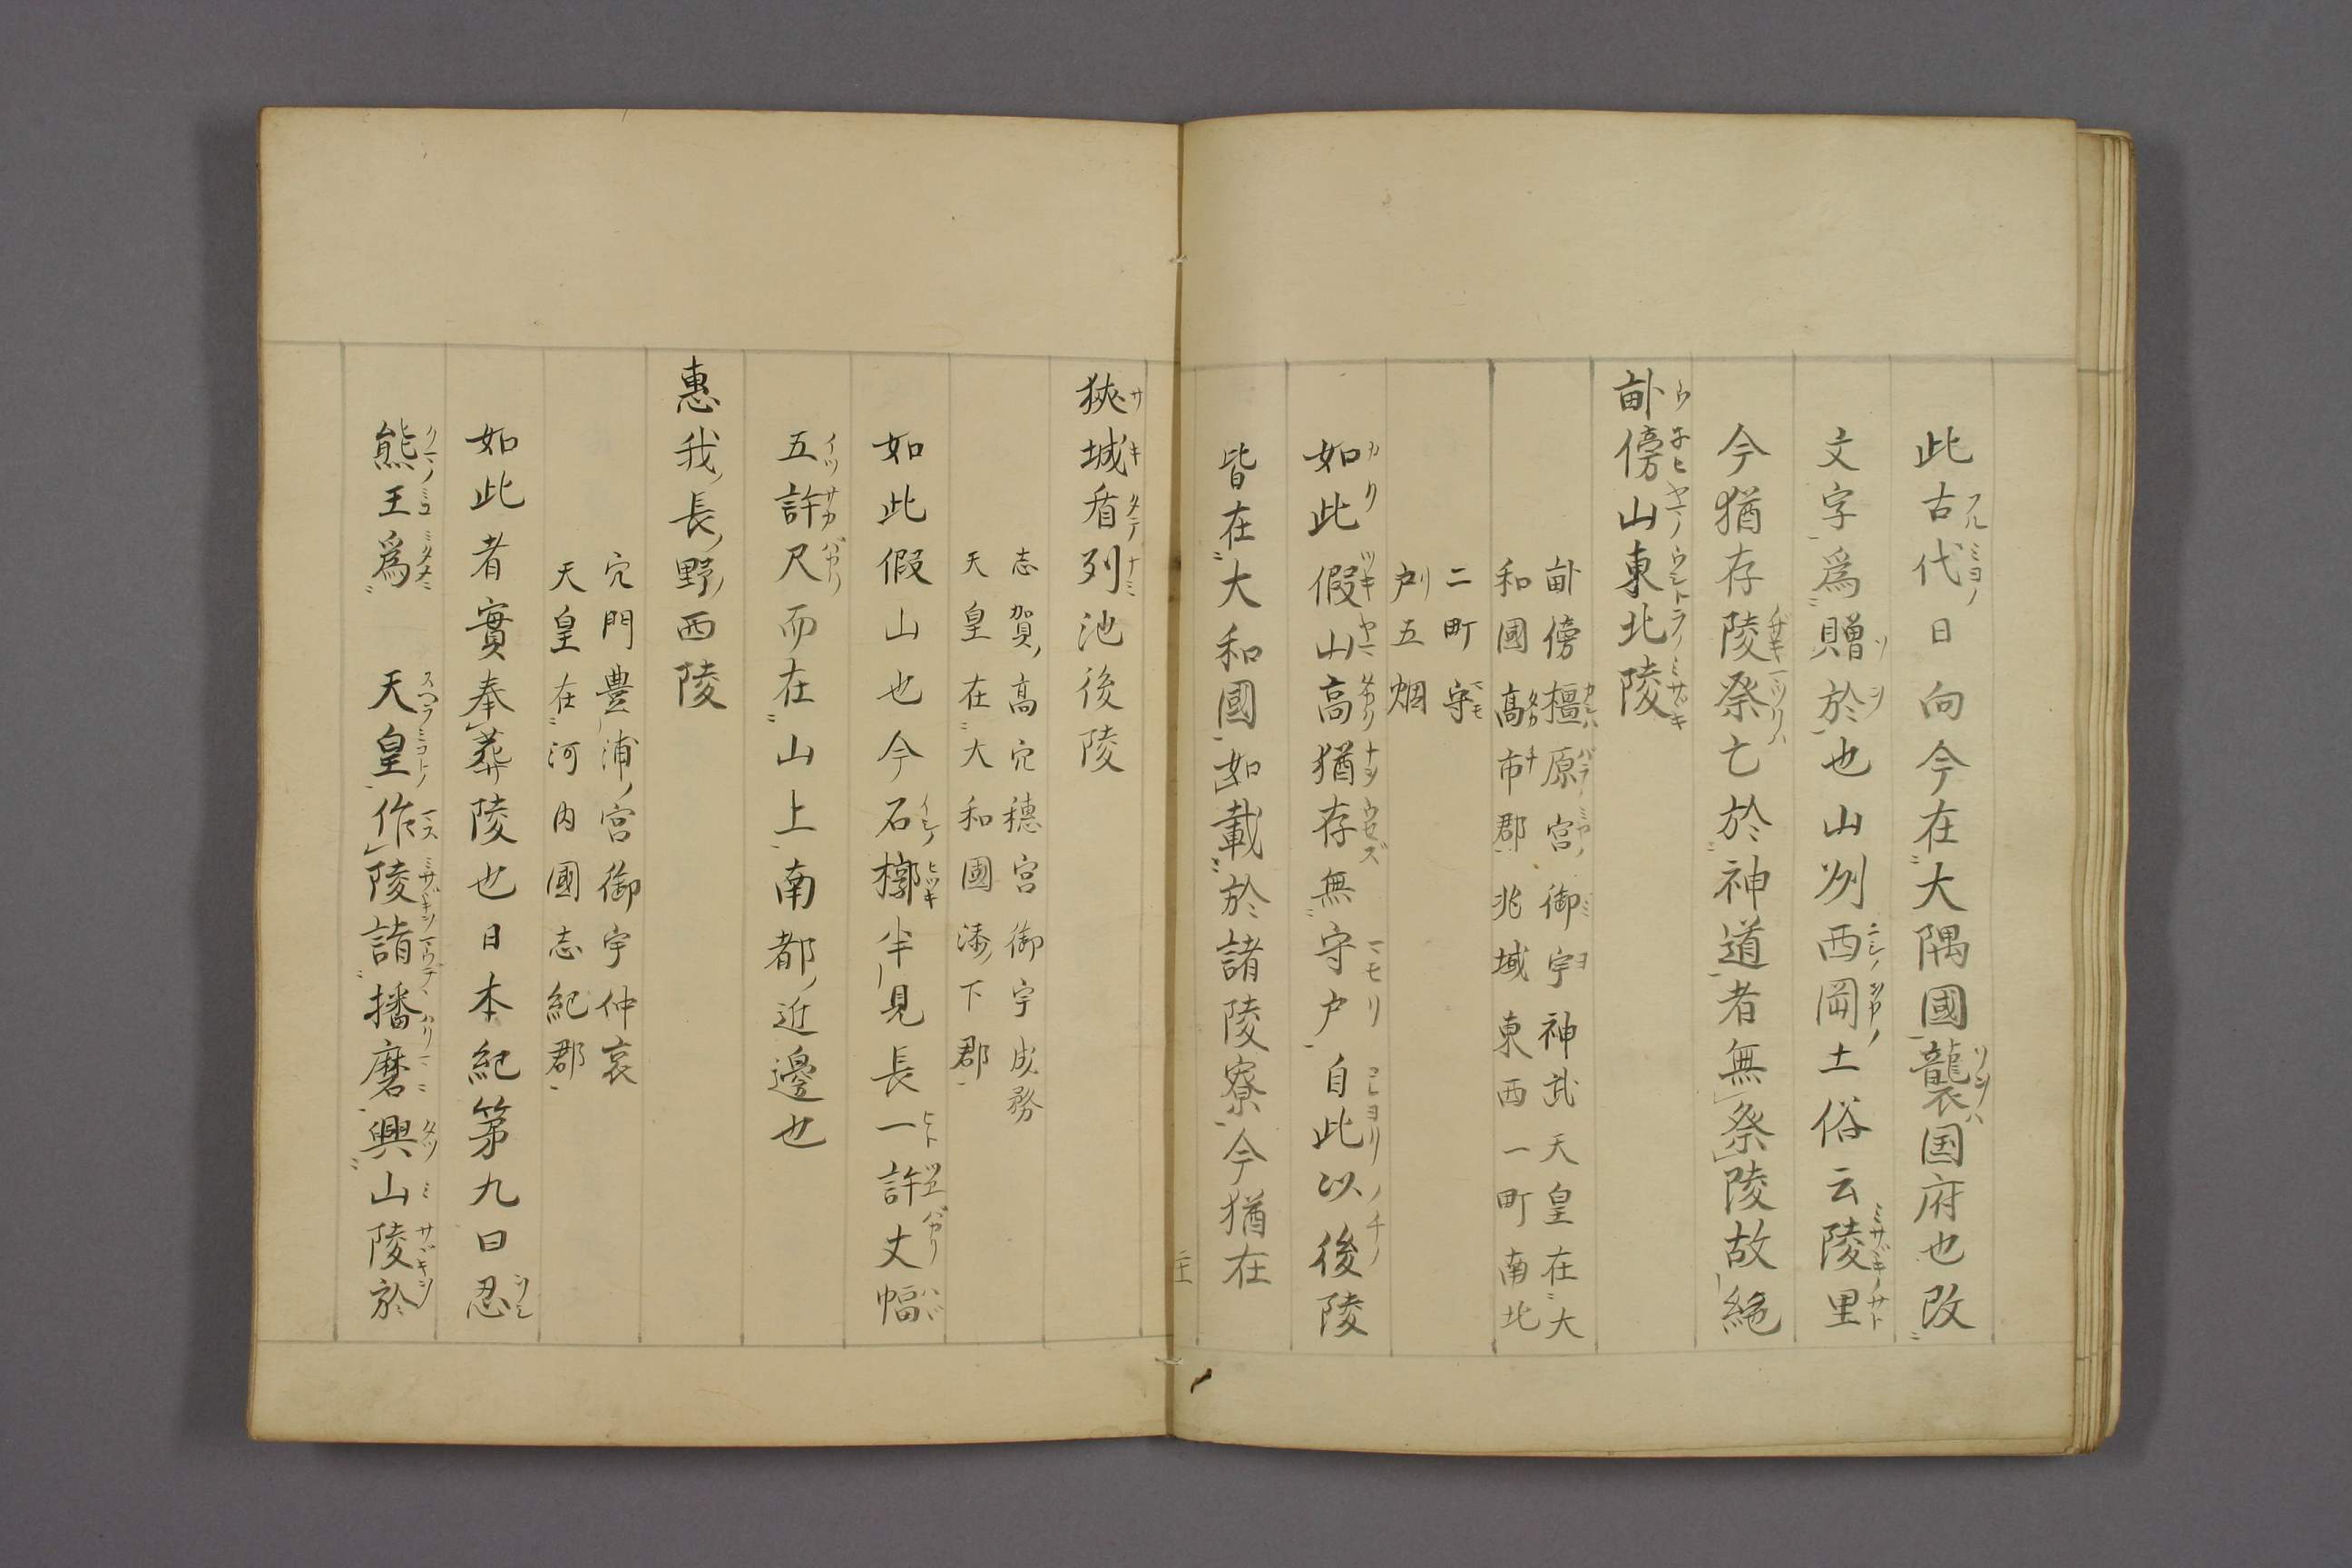 此古代日向今在大隅國襲国府也改
文字為贈於也山刕西岡土俗云陵里
今猶存陵祭亡於神道者無祭陵故絶
畝傍山東北陵
畝傍橿原宮御宇神武天皇在大
和國高市郡兆域東西一町南北
二町守
戸五烟
如此假山高猶存無守戸自此以後陵
皆在大和國如載於諸陵寮今猶在
狹城盾列池後陵
志賀高穴穗宮御宇成務
天皇在大和國添下郡
如此假山也今石槨半見長一許丈幅
五許尺而在山上南都近邊也
惠我長野西陵
穴門豊浦宮御宇仲哀
天皇在河内國志紀郡
如此者實奉葬陵也日本紀第九曰忍
熊王為 天皇作陵詣播磨興山陵於